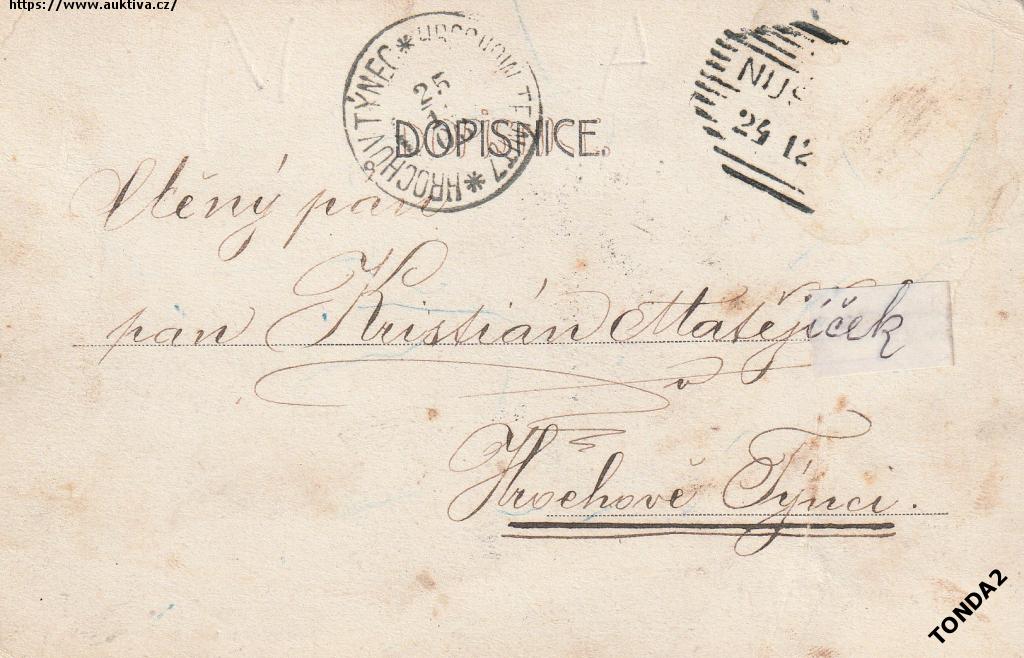 https://www.auktiva.cz/
HROCHŮV TÝNEC * HROCHOW TEINITZ *
25
NUS
24 12
DOPISNICE.
Ctěný pan
pan Kristián Matějíček
v
Hrochově Týnci.
TONDA2